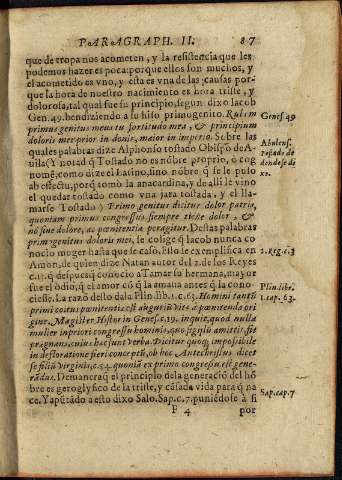 PARAGRAPH. II. 87
que de tropa nos acometen, y la resistencia que les
podemos hazer es poca: porque ellos son muchos, y
el acometido es vno, y esta es vna de las causas por-
que la hora de nuestro nacimiento es hora triste, y
dolorosa, tal qual fue su principio, segun dixo Iacob
Gen. 49. bendiziendo a su hijo primogenito. Ruben
primus genitus meus tu fortitudo mea, & principium
doloris mei prior in donis, maior in imperio. Sobre las
quales palabras dize Alphonso tostado Obispo de A-
uila (Y notad q̃ Tostado no es nõbre proprio, ò cog
nomẽ, como dize el Latino, sino nõbre q̃ se le puso
ab effectu, porq̃ tomò la anacardina, y de alli le vino
el quedar tostado como vna jara tostada, y el lla-
marse Tostado) Primo genitus dicitur dolor patris,
quoniam primus congressus siempre triste dolor, &
nõ sine dolore, ac pœnitentia peragitur. Destas palabras
primogenitus doloris mei, se colige q̃ Iacob nunca co
nocio muger hasta que se casò. Esto se exemplifica en
Amon, de quien dize Natan autor del 2. de los Reyes
c.13. q̃ despues q̃ conocio a Tamar su hermana, mayor
fue el odio, q̃ el amor cõ q̃ la amaua antes q̃ la cono-
ciesse. La razõ desto dala Plin. lib. 1. c. 63. Homini tantũ
primi coitus pœnitentia est auguriũ vitæ à pœnitenda ori
gine. Magister Histor. in Genes. c. 39. inquit, quod nulla
mulier in priori congressu hominis, quo sigillũ amittit, fit
prægnans, cuius hæc sunt verba. Dicitur quoq; impossibile
in defloratione fieri conceptũ, ob hoc Antechristus dicet
se filiũ Virginis, c. 54. quoniã ex primo congressu est gene-
rãdus. De manera q̃ el principio de la generaciõ del hõ
bre es geroglyfico de la triste, y cãsada vida para q̃ na
ce. Y apũtãdo a esto dixo Salo. Sap. c. 7. puniẽdose à si
F 4 por
Genes. 49
Abulens.
2. Reg. c. 3
Plin. libr.
1. cap. 63.
Sap. cap. 7